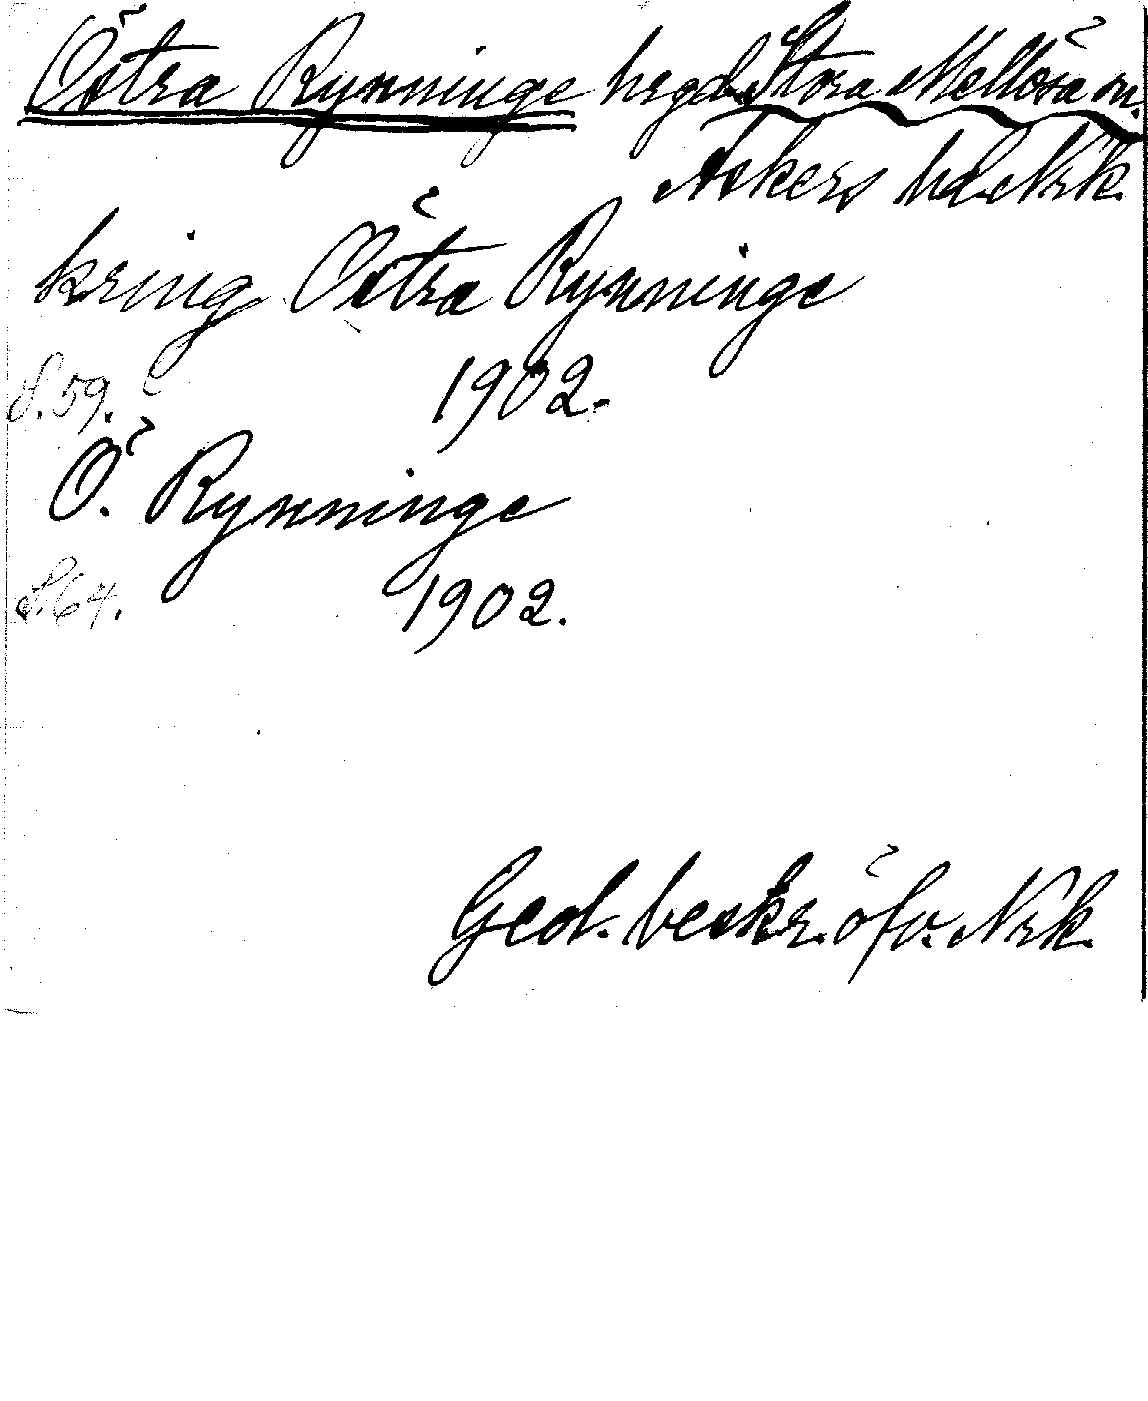 Östra Rynninge hrgd Stora Mellösa sn.
Askers hd. Nrk.
kring Östra Rynninge
S. 59. 1902.
Ö. Rynninge
S. 64. 1902.
Geol. beskr. öfv. Nrk.